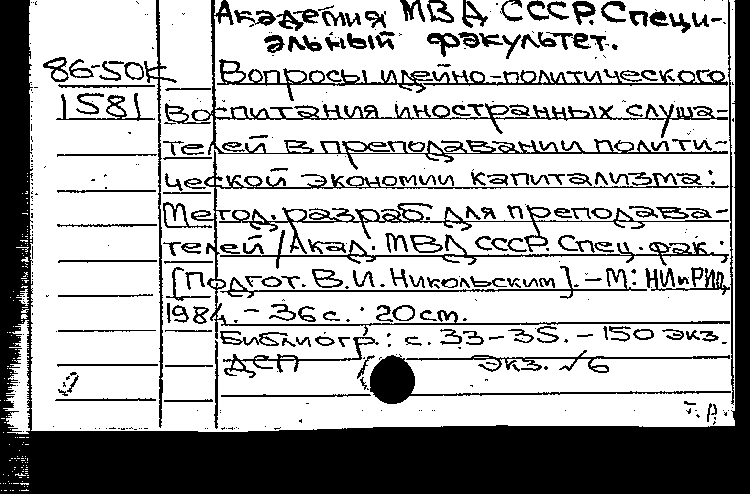 Академия МВД СССР. Специ-
альный факультет.
86-50К Вопросы идейно-политического
1581 воспитания иностранных слуша-
телей в преподавании полити-
ческой экономии капитализма:
Метод. разраб. для преподава-
телей / Акад. МВД СССР. Спец. фак.;
[Подгот. В.И. Никольским]. - М: НИиРИО,
1984. - 36 с.; 20 см.
Библиогр.: с. 33-35. - 150 экз.
ДСП экз. №6